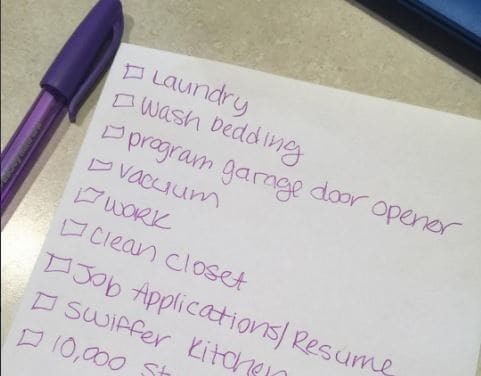 Laundry
Wash bedding
program garage door opener
vacuum
WORK
Clean Closet
Job Applications/Resume
Swiffer Kitchen
10,000